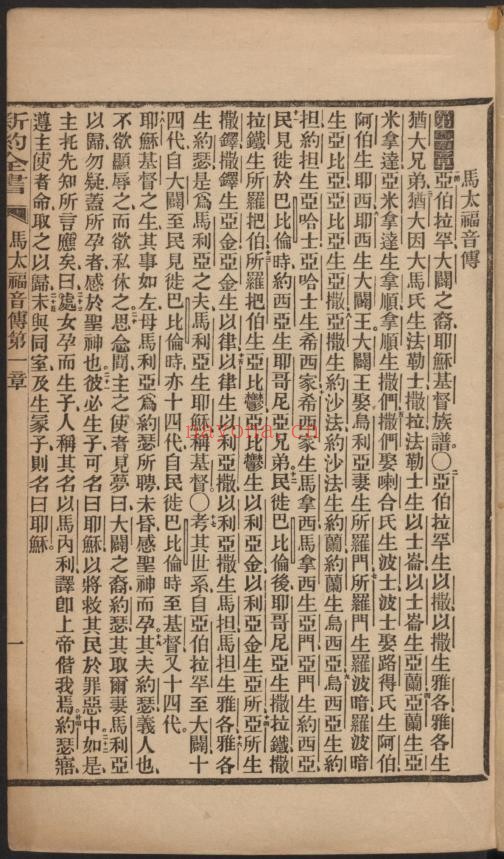 馬太福音傳
第一章亞伯拉罕大闢之裔耶穌基督族譜〇亞伯拉罕生以撒以撒生雅各雅各生
猶大兄弟猶大因大馬氏生法勒士撒拉法勒士生以士崙以士崙生亞蘭亞蘭生亞
米拿達亞米拿達生拿順拿順生撒們撒們娶喇合氏生波士波士娶路得氏生阿伯
阿伯生耶西耶西生大闢王大闢王娶烏利亞妻生所羅門所羅門生羅波暗羅波暗
生亞比亞亞比亞生亞撒亞撒生約沙法約沙法生約蘭約蘭生烏西亞烏西亞生約
担約担生亞哈士亞哈士生希西家希西家生馬拿西馬拿西生亞門亞門生約西亞
民見徙於巴比倫時約西亞生耶哥尼亞兄弟民徙巴比倫後耶哥尼亞生撒拉鐵撒
拉鐵生所羅把伯所羅把伯生亞比鬱亞比鬱生以利亞金以利亞金生亞所亞所生
撒鐸撒鐸生亞金亞金生以律以律生以利亞撒以利亞撒生馬担馬担生雅各雅各
生約瑟是爲馬利亞之夫馬利亞生耶穌稱基督〇考其世系自亞伯拉罕至大闢十
四代自大闢至民見徙巴比倫時亦十四代自民徙巴比倫時至基督又十四代
耶穌基督之生其事如左母馬利亞爲約瑟所聘未昏感聖神而孕其夫約瑟義人也
不欲顯辱之而欲私休之思念間主之使者見夢曰大闢之裔約瑟其取爾妻馬利亞
以歸勿疑蓋所孕者感於聖神也彼必生子可名曰耶穌以將救其民於罪惡中如是
主托先知所言應矣曰處女孕而生子人稱其名以馬內利譯卽上帝偕我焉約瑟寤
遵主使者命取之以歸未與同室及生冢子則名曰耶穌
新約全書
馬太福音傳第一章
一
nayona.cn